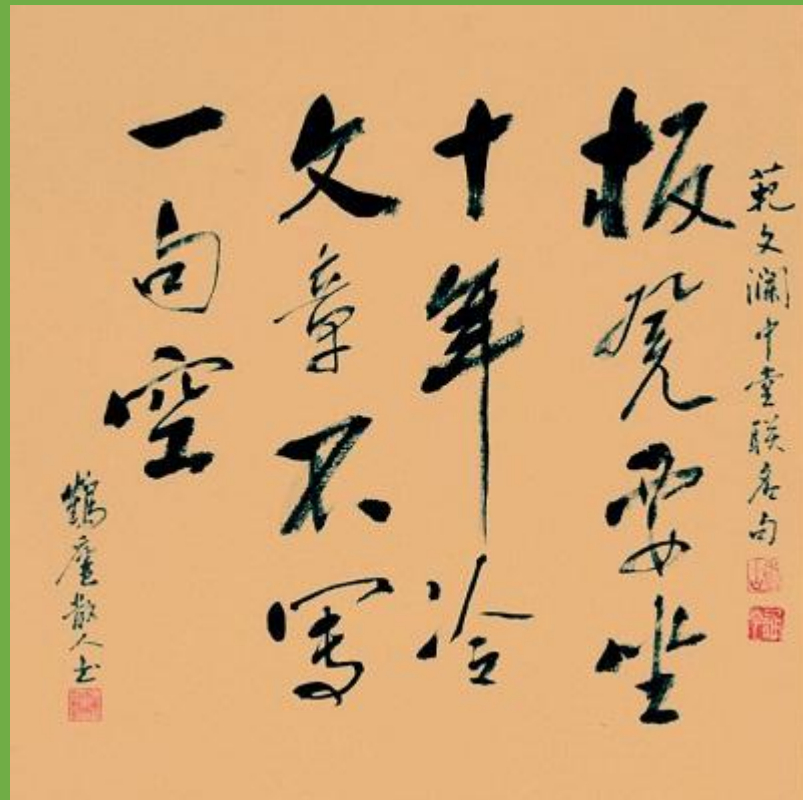 範文澜中堂联名句
板凳要坐
十年冷
文章不写
一句空
鶴廬散人书